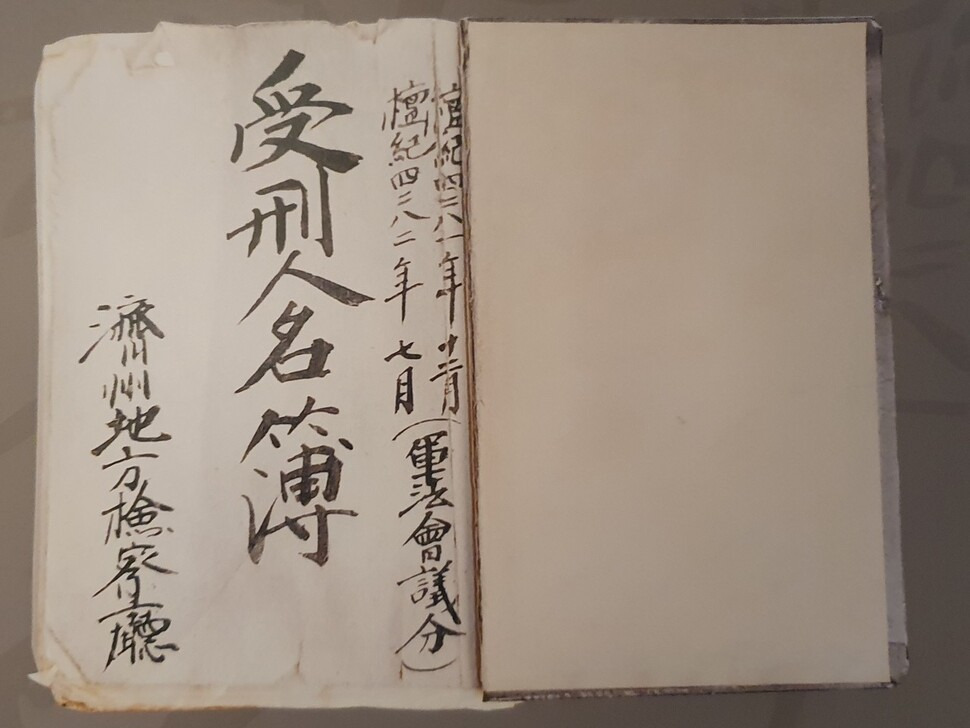 檀紀四二八一年 十二月
檀紀四二八二年 七月
(軍法會議分)
受刑人名簿
濟州地方檢察廳